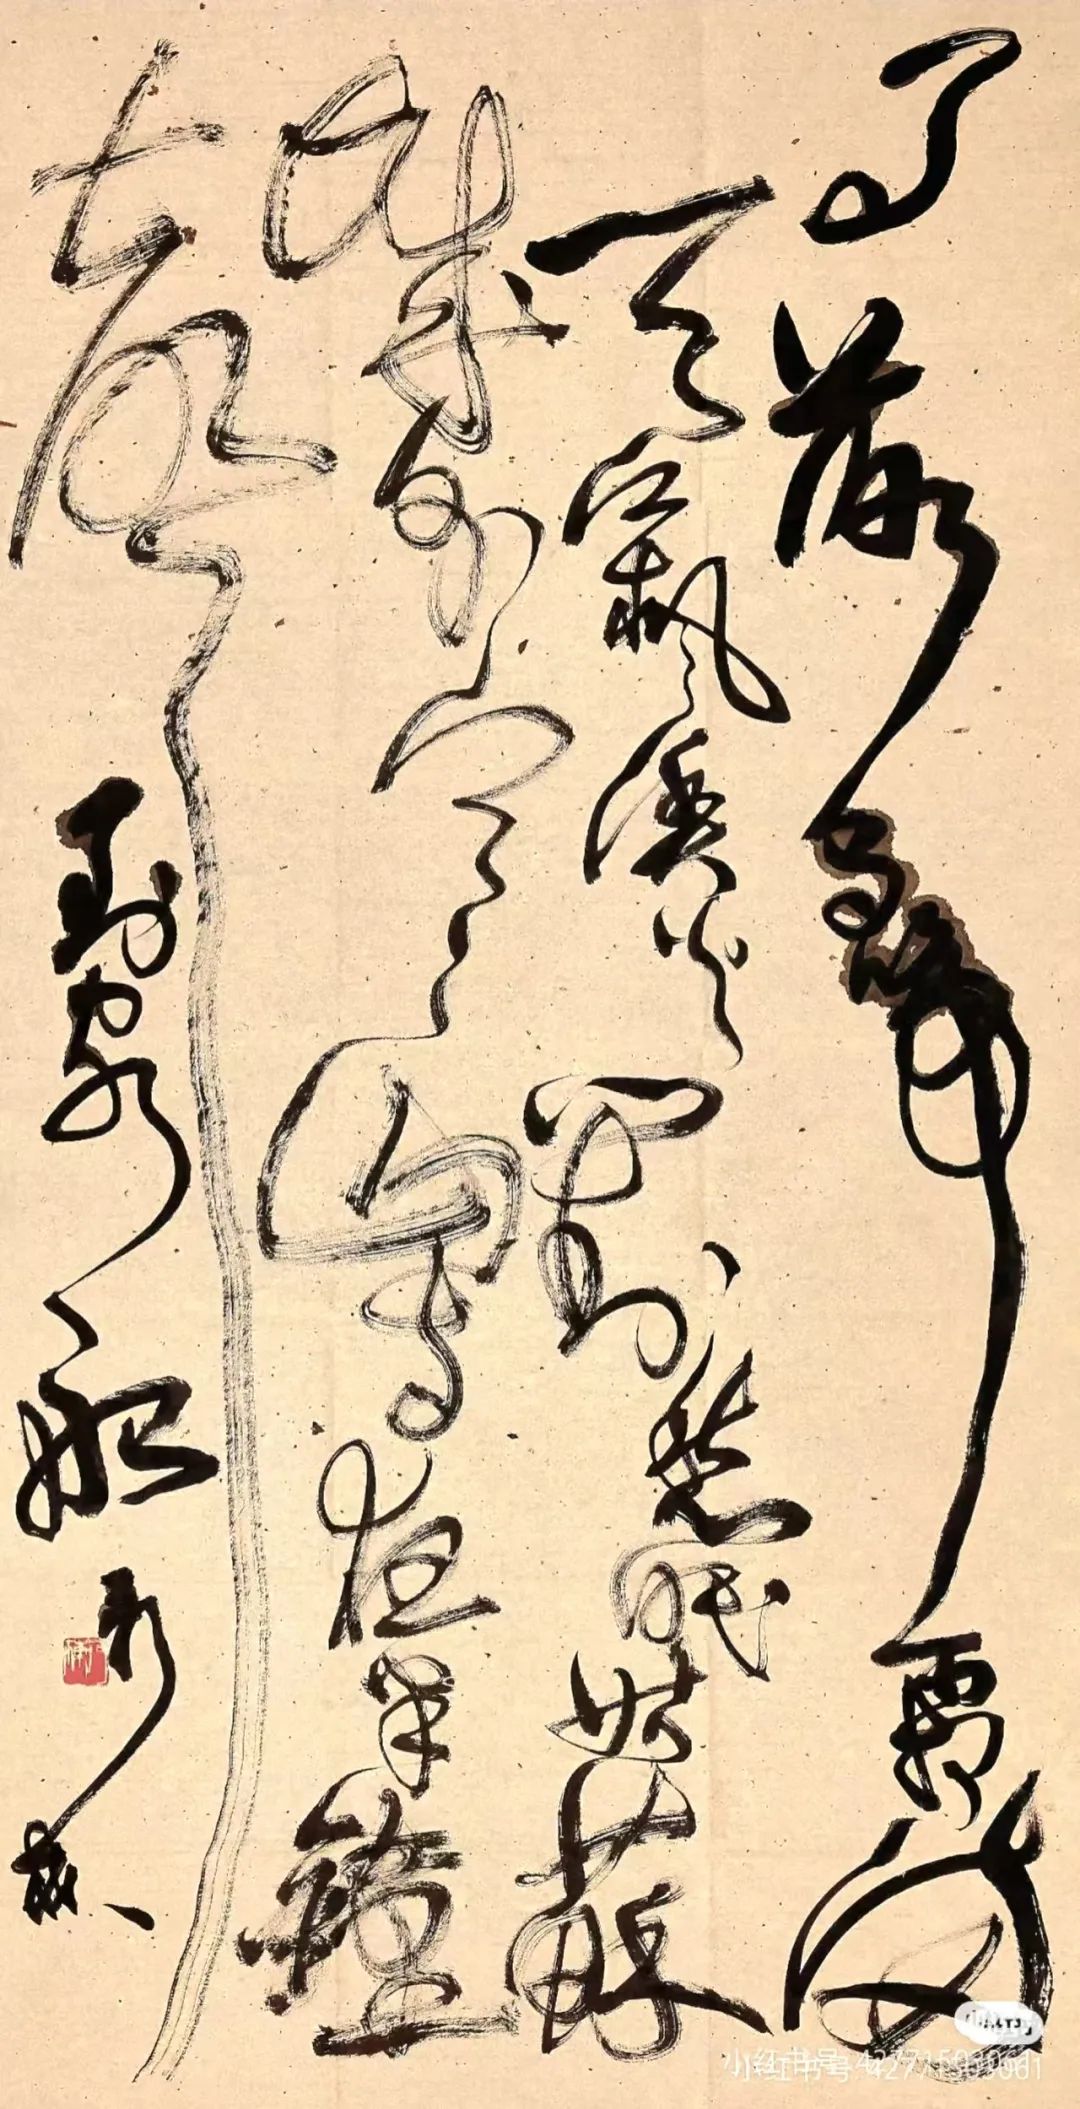 月落乌啼霜满
天江枫渔火对愁眠姑苏
城外寒山寺夜半钟
声到客船
小红书号:427715030661